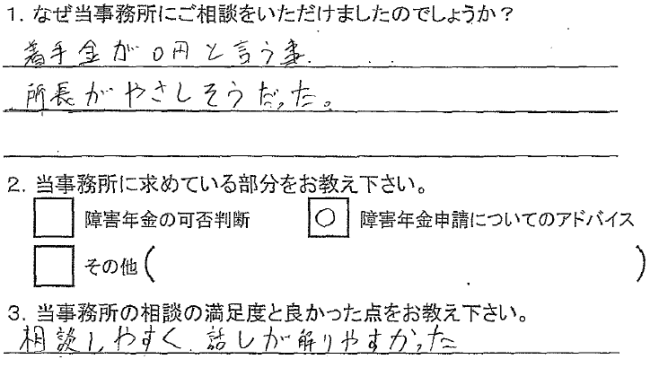 1. なぜ当事務所にご相談をいただけましたのでしょうか？
着手金が0円と言う事.
所長がやさしそうだった。
2. 当事務所に求めている部分をお教え下さい。
障害年金の可否判断 ○ 障害年金申請についてのアドバイス
その他( )
3. 当事務所の相談の満足度と良かった点をお教え下さい。
相談しやすく、話しが解りやすかった